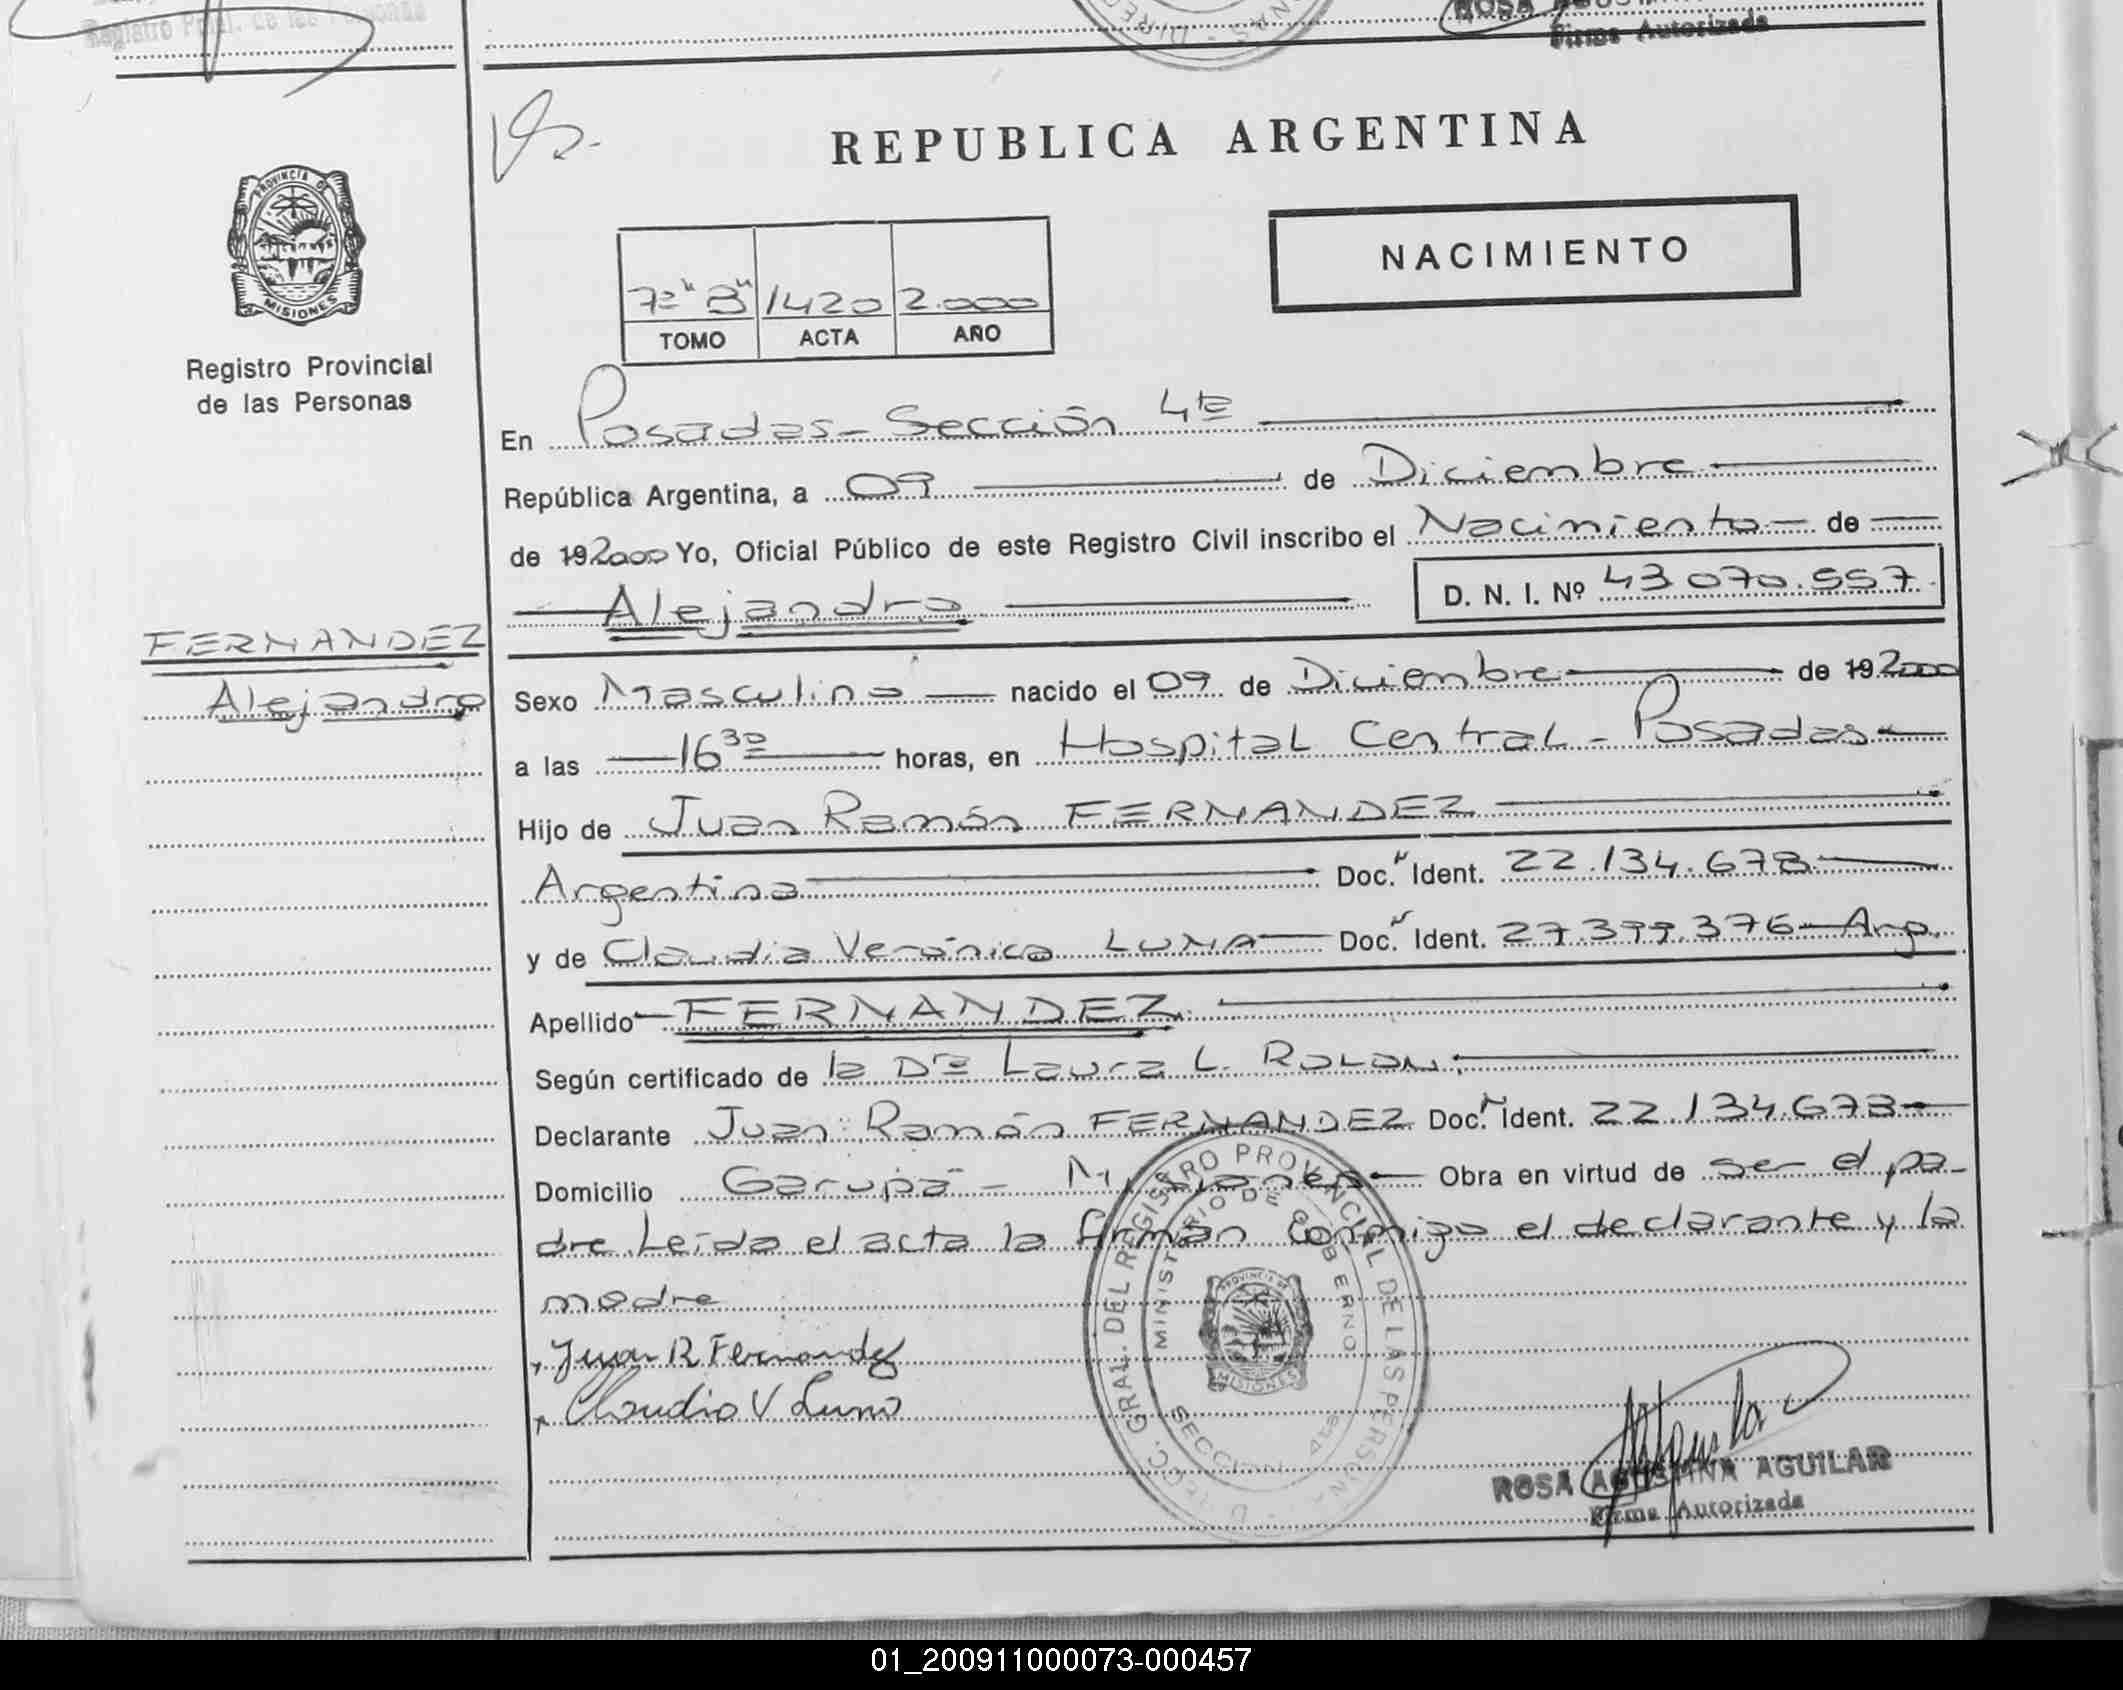 Registro Provl. de las Personas
ROSA
Firma Autorizada
REPUBLICA ARGENTINA
PROVINCIA DE
MISIONES
Registro Provincial
de las Personas
NACIMIENTO
7º "B" 1420 2.000
TOMO ACTA AÑO
En Posadas - Sección 4ta
República Argentina, a 09 de Diciembre
de 192000 Yo, Oficial Público de este Registro Civil inscribo el Nacimiento - de
Alejandro
D. N. I. Nº 43.070.557.
FERNANDEZ
Alejandro
Sexo Masculino nacido el 09 de Diciembre de 192000
a las 16 30 horas, en Hospital Central - Posadas
Hijo de Juan Ramón FERNANDEZ
Argentino Doc. Ident. 22.134.678
y de Claudia Verónica LUNA Doc. Ident. 27.399.376 - Arg.
Apellido FERNANDEZ
Según certificado de la Dra Laura L. ROLON.
Declarante Juan Ramón FERNANDEZ Doc. Ident. 22.134.678
Domicilio Garupá - Misiones Obra en virtud de ser el pa-
dre. Leída el acta la firman conmigo el declarante y la
madre
Juan R Fernandez
Claudia V Luna
DIRECC. GRAL. DEL REGISTRO PROVINCIAL DE LAS PERSONAS
MINISTERIO DE GOBIERNO
PROVINCIA DE
MISIONES
SECCION 4ta
ROSA AGUSTINA AGUILAR
Firma Autorizada
01_200911000073-000457